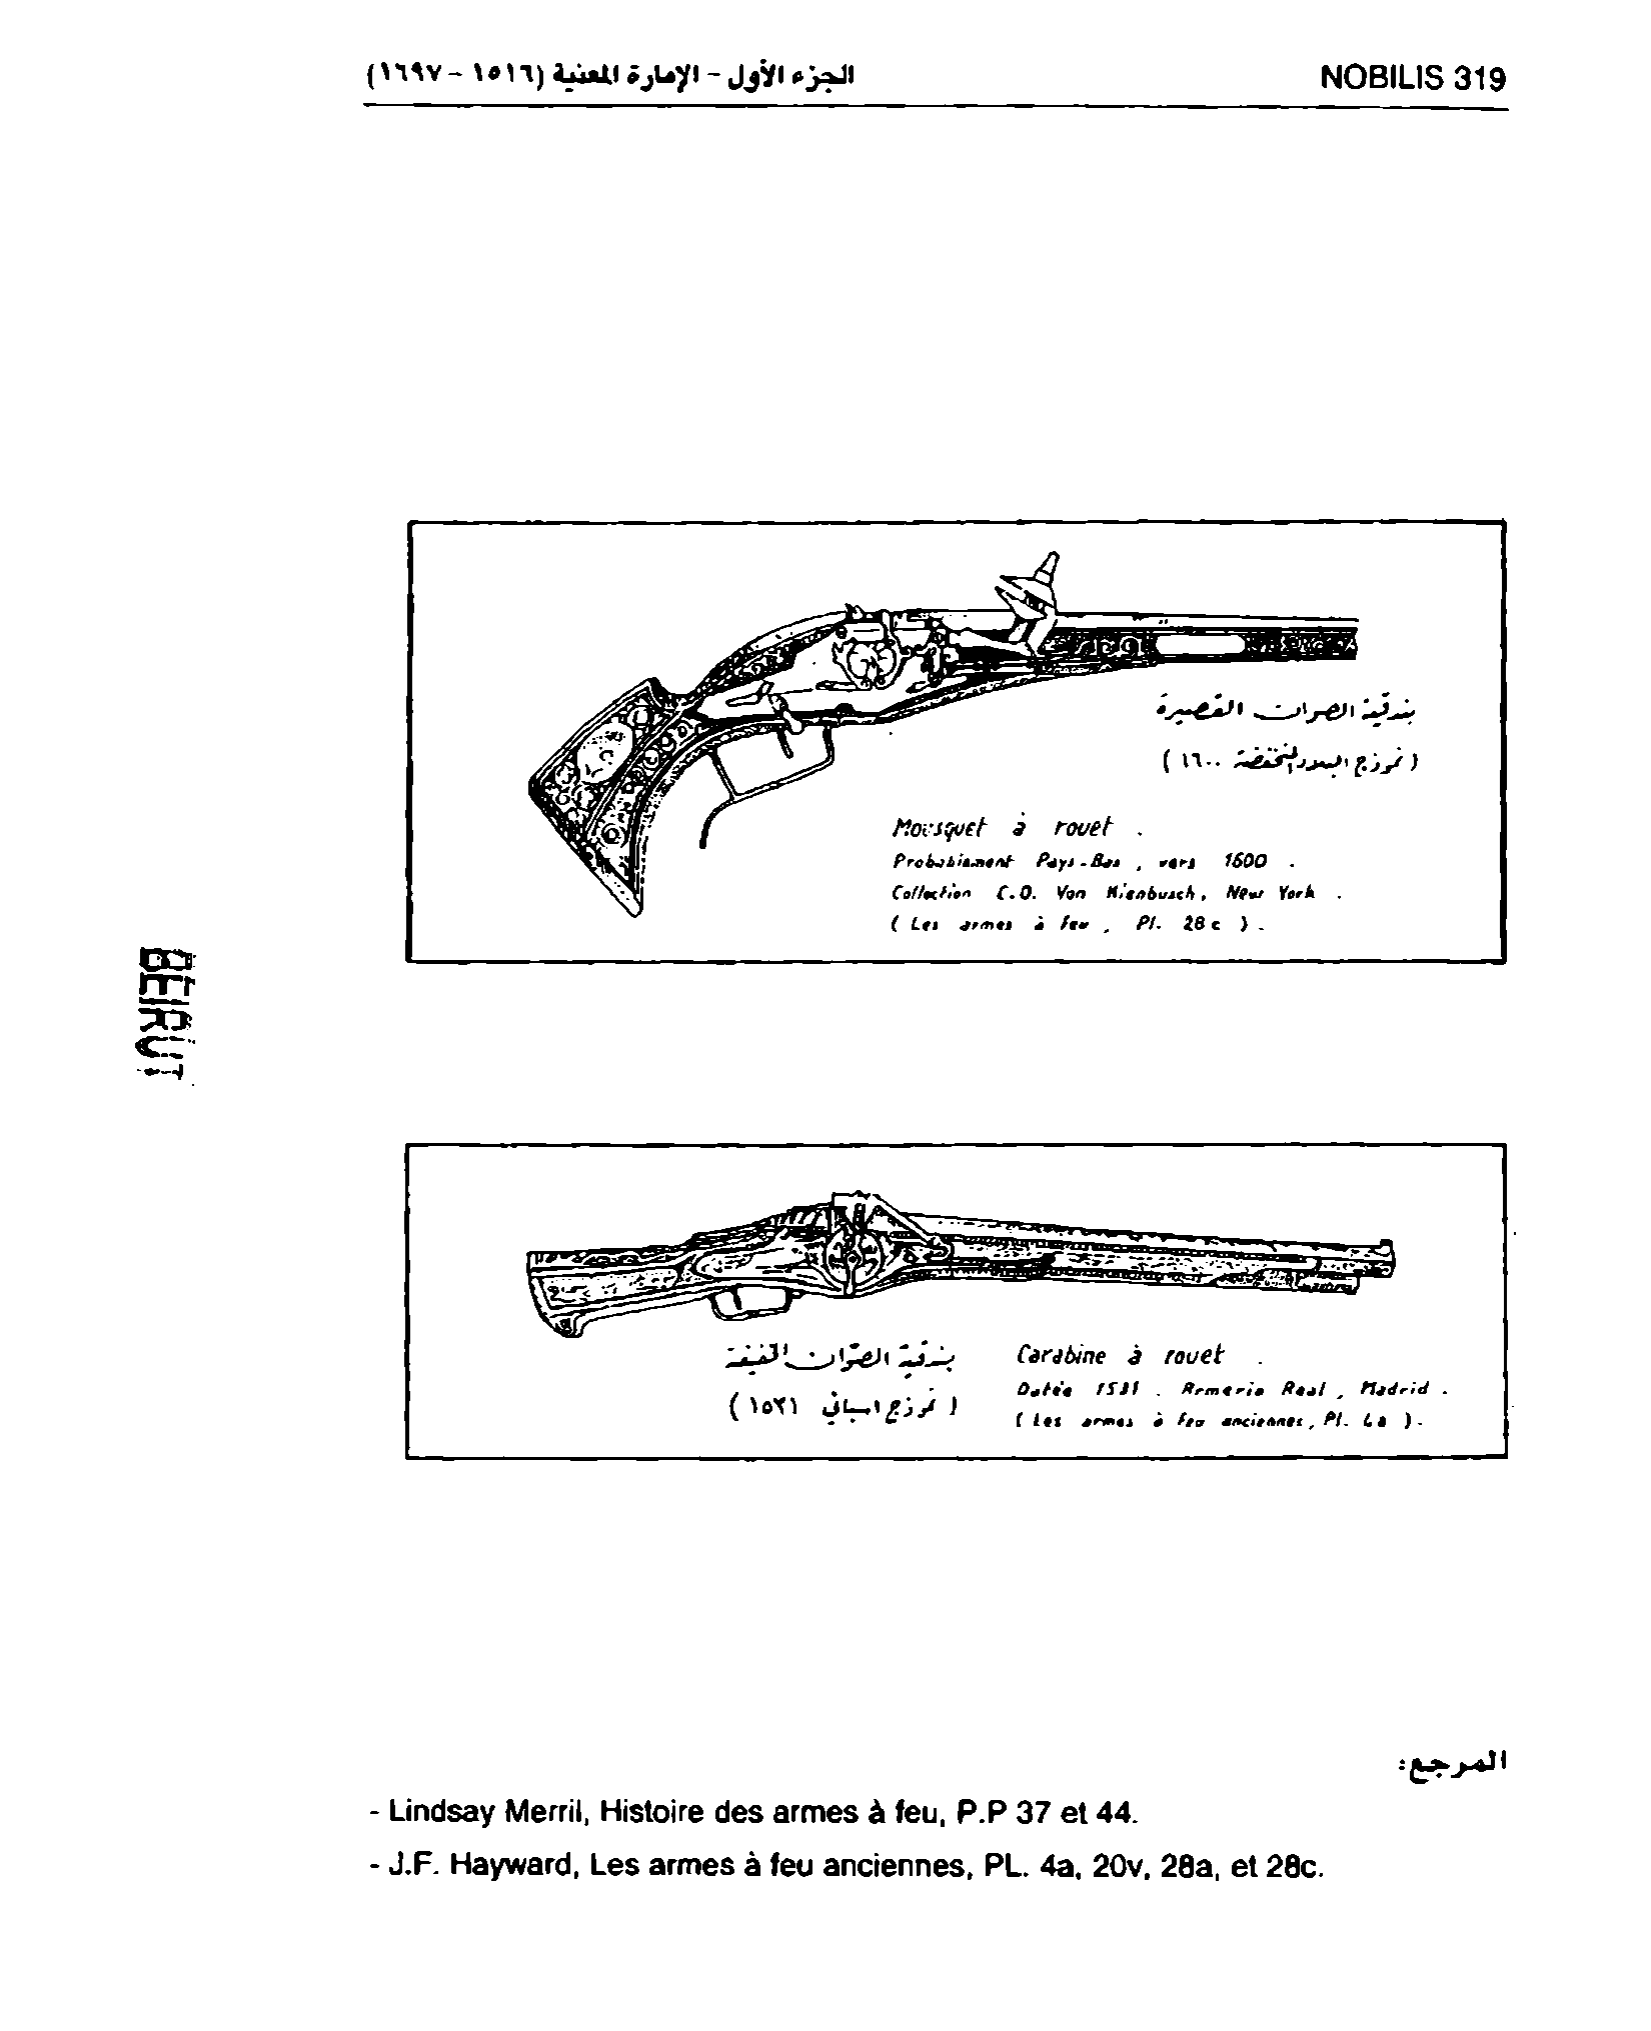 الجزء الأول - الإمارة المعنية (١٥١٦ - ١٦٩٧)
NOBILIS 319
بندقية الصوان القصيرة
(نموذج البلاد المنخفضة ١٦٠٠)
Mousquet à rouet .
Probablement Pays-Bas , vers 1600 .
Collection C.O. Von Kienbusch, New York .
( Les armes à feu , Pl. 28 c ) .
BEIRUT
بندقية الصوّان الخفيفة
(نموذج اسباني ١٥٣١)
Carabine à rouet .
Datée 1531 . Armeria Real , Madrid .
( Les armes à feu anciennes, Pl. 4a ) .
المرجع:
- Lindsay Merril, Histoire des armes à feu, P.P 37 et 44.
- J.F. Hayward, Les armes à feu anciennes, PL. 4a, 20v, 28a, et 28c.